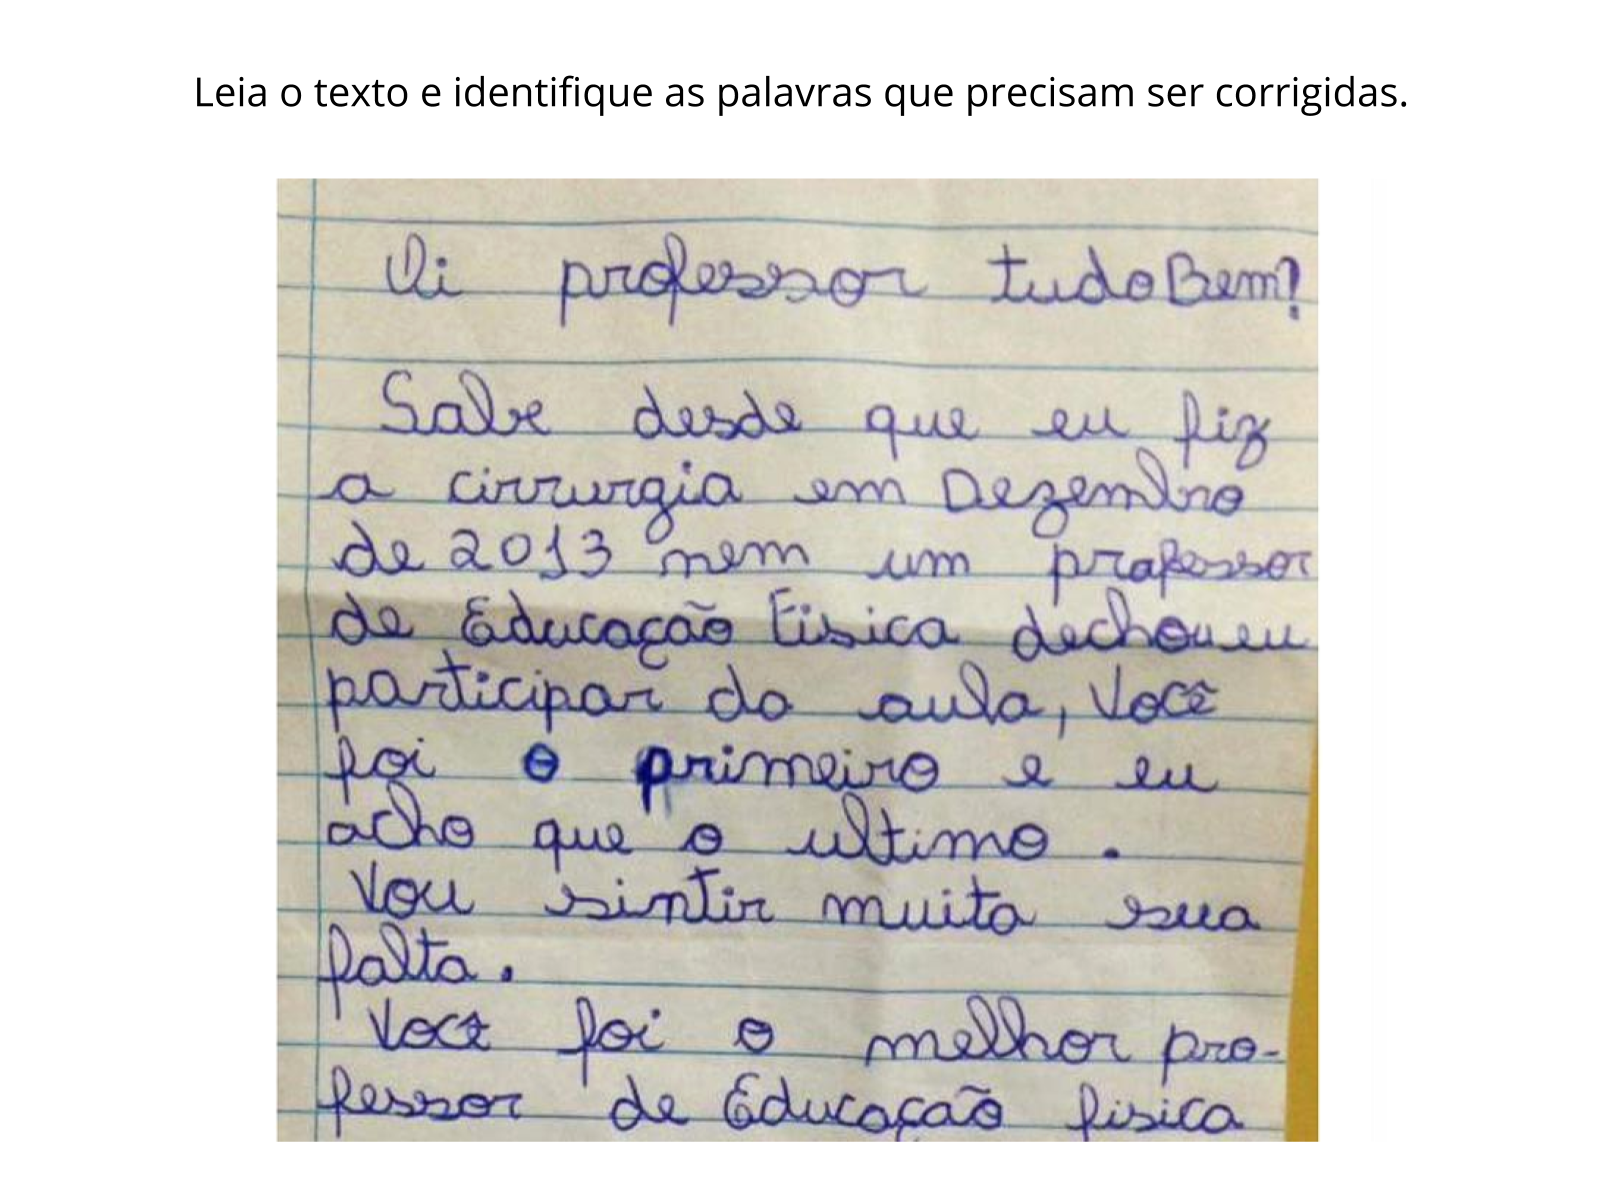 Leia o texto e identifique as palavras que precisam ser corrigidas.
Oi professor tudo Bem?
Sabe desde que eu fiz
a cirrurgia em Dezembro
de 2013 nem um professor
de Educação Fisica dechou eu
participar da aula, Você
foi o primeiro e eu
acho que o ultimo.
Vou sintir muita sua
falta.
Você foi o melhor pro-
fessor de Educação fisica